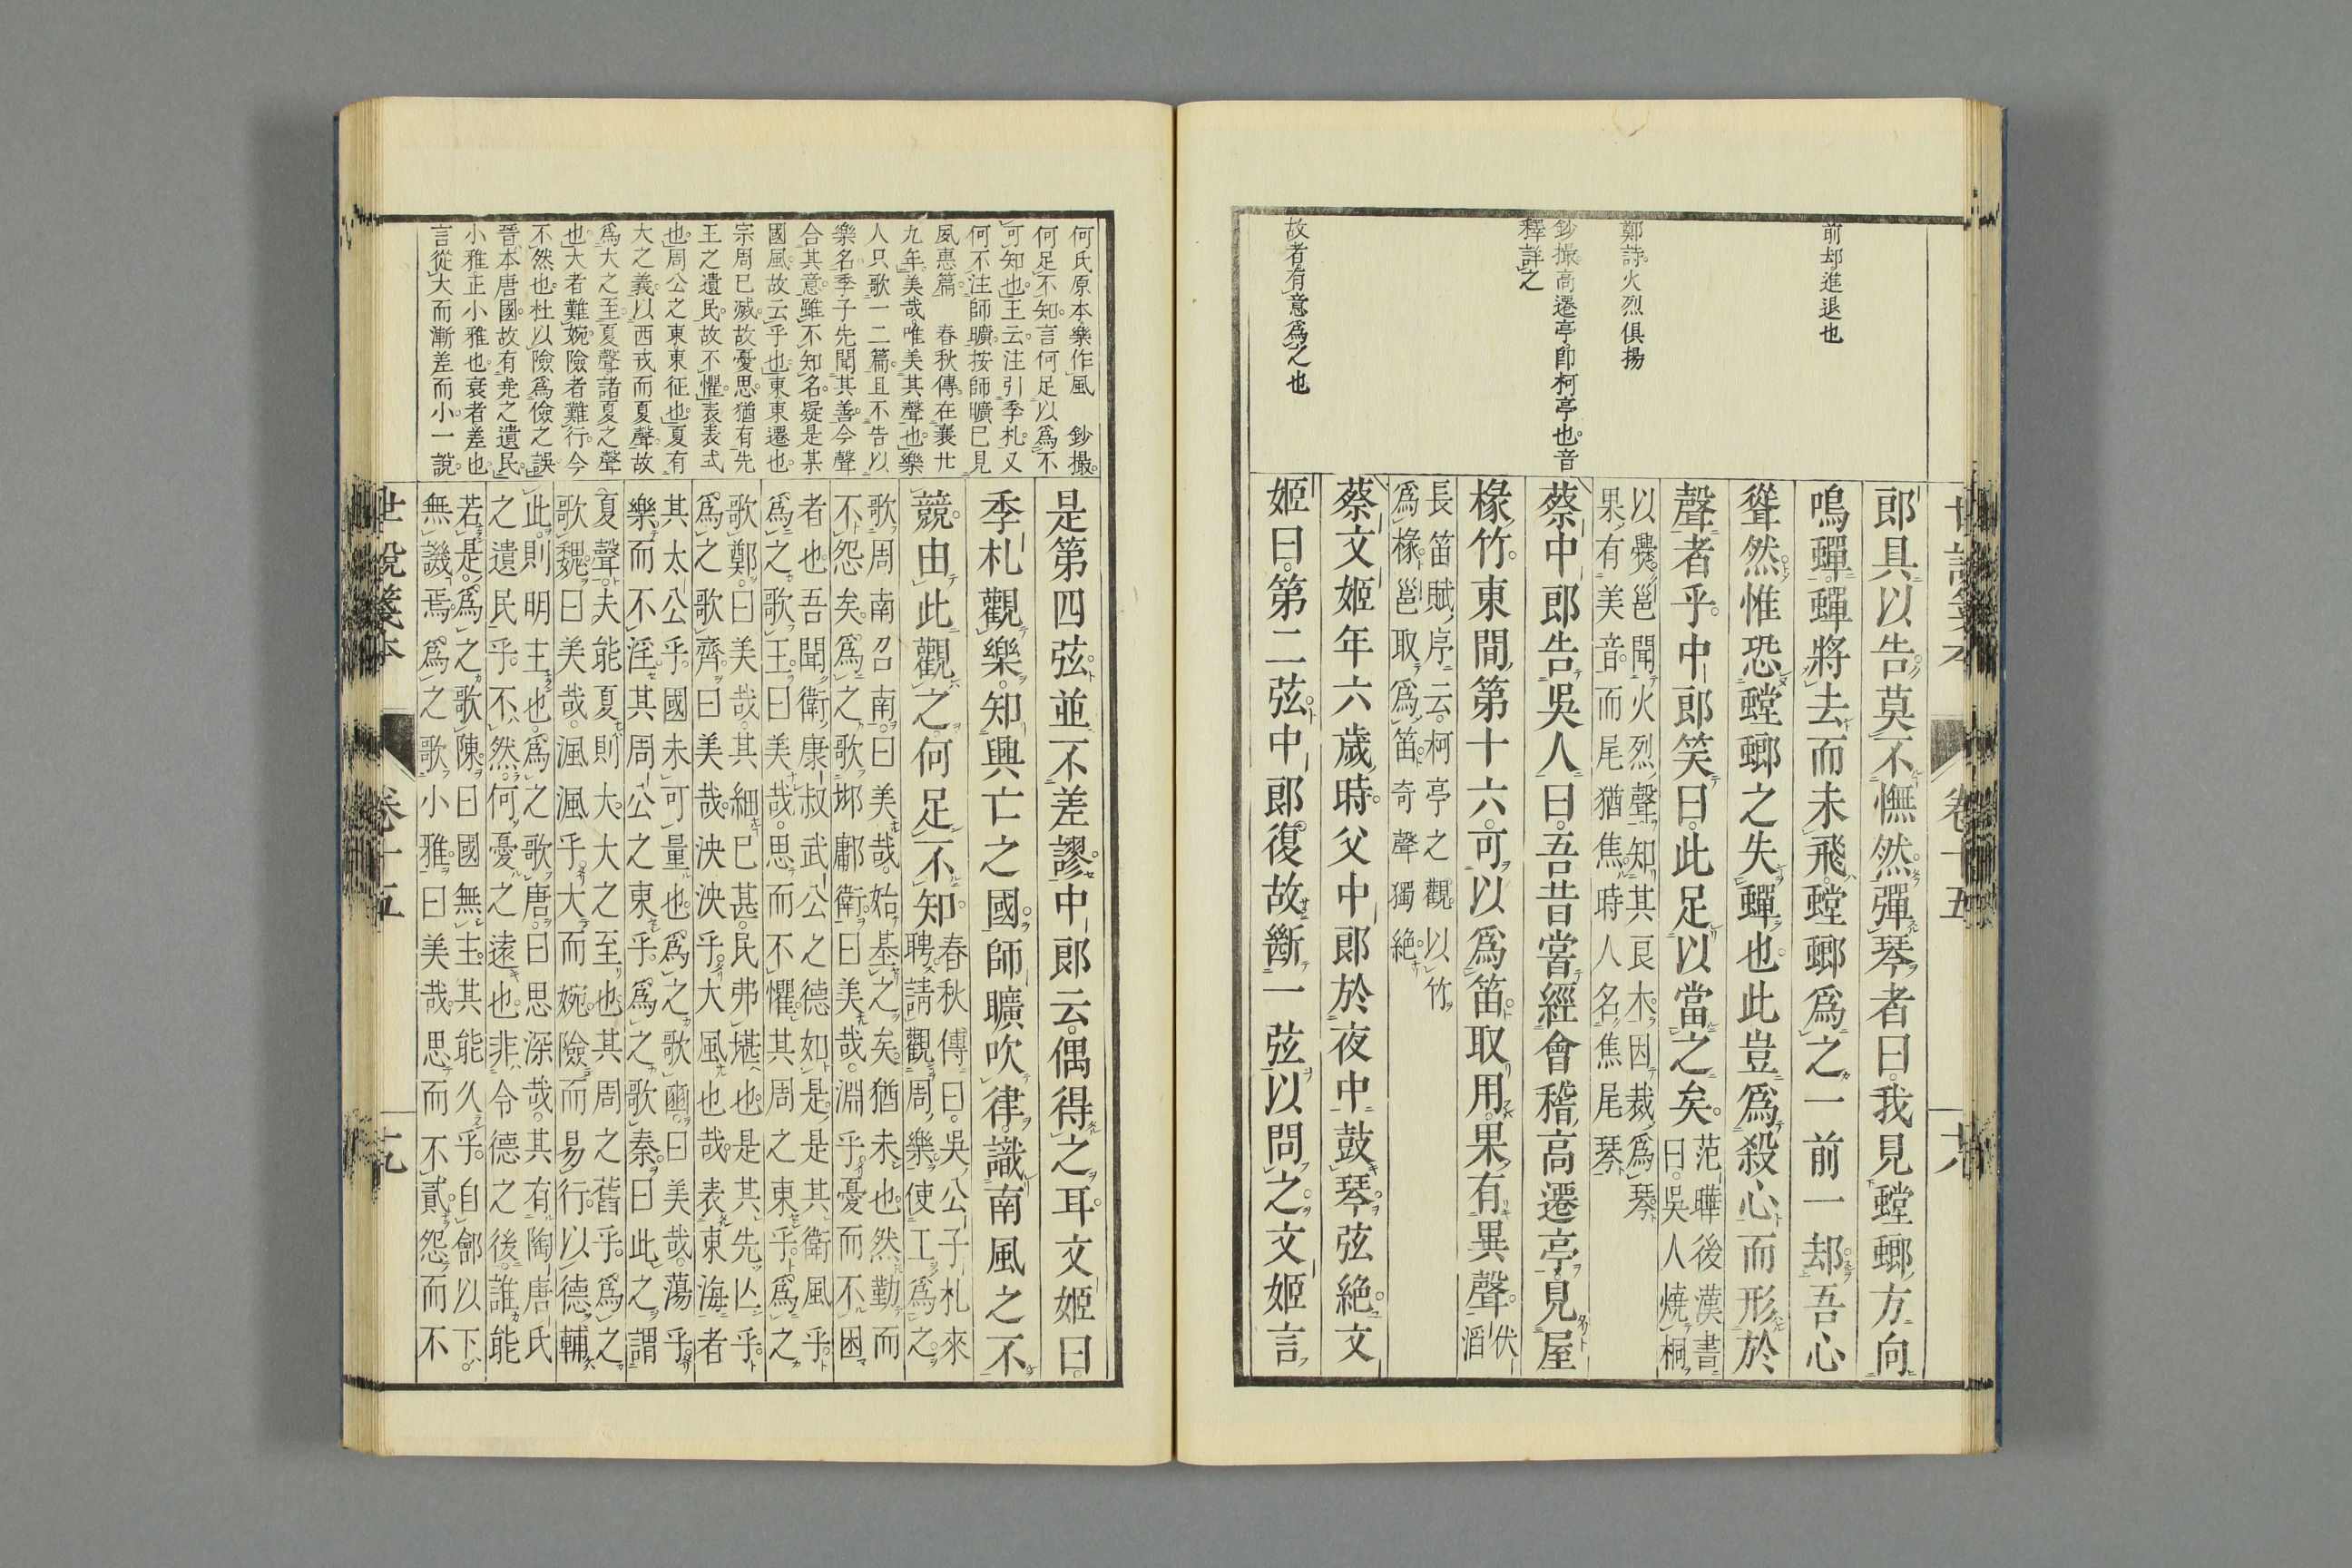 前却進退也
鄭詩火烈俱揚
鈔撮高遷亭卽柯亭也音
釋詳之
故者有意爲之也
郞具以告莫不憮然彈琴者曰我見螳螂方向
鳴蟬蟬將去而未飛螳螂爲之一前一却吾心
聳然惟恐螳螂之失蟬也此豈爲殺心而形於
聲者乎中郞笑曰此足以當之矣
范曄後漢書
曰吳人燒桐
以爨邕聞火烈聲知其良木因裁爲琴
果有美音而尾猶焦時人名焦尾琴
蔡中郞告吳人曰吾昔嘗經會稽高遷亭見屋
椽竹東間第十六可以爲笛取用果有異聲
伏
滔
長笛賦序云柯亭之觀以竹
爲椽邕取爲笛奇聲獨絶
蔡文姬年六歲時父中郞於夜中鼓琴弦絶文
姬曰第二弦中郞復故斷一弦以問之文姬言
世說箋本 卷十五
何氏原本樂作風 鈔撮
何足不知言何足以爲不
可知也王云注引季札又
何不注師曠按師曠已見
夙惠篇 春秋傳在襄廿
九年美哉唯美其聲也樂
人只歌一二篇且不告以
樂名季子先聞其善今聲
合其意雖不知名疑是某
國風故云乎也東東遷也
宗周已滅故憂思猶有先
王之遺民故不懼表表式
也周公之東東征也夏有
大之義以西戎而夏聲故
爲大之至夏聲諸夏之聲
也大者難婉險者難行今
不然也杜以險爲儉之誤
晉本唐國故有尭之遺民
小雅正小雅也衰者差也
言從大而漸差而小一說
是第四弦並不差謬中郞云偶得之耳文姬曰
季札觀樂知興亡之國師曠吹律識南風之不
競由此觀之何足不知
春秋傳曰吳公子札來
聘請觀周樂使工爲之
歌周南召南曰美哉始基之矣猶未也然勤而
不怨矣爲之歌邶鄘衛曰美哉淵乎憂而不困
者也吾聞衛康叔武公之德如是是其衛風乎
爲之歌王曰美哉思而不懼其周之東乎爲之
歌鄭曰美哉其細已甚民弗堪也是其先亡乎
爲之歌齊曰美哉泱泱乎大風也哉表東海者
其太公乎國未可量也爲之歌豳曰美哉蕩乎
樂而不淫其周公之東乎爲之歌秦曰此之謂
夏聲夫能夏則大大之至也其周之舊乎爲之
歌魏曰美哉渢渢乎大而婉險而易行以德輔
此則明主也爲之歌唐曰思深哉其有陶唐氏
之遺民乎不然何憂之遠也非令德之後誰能
若是爲之歌陳曰國無主其能久乎自鄶以下
無譏焉爲之歌小雅曰美哉思而不貳怨而不
世說箋本 卷十五